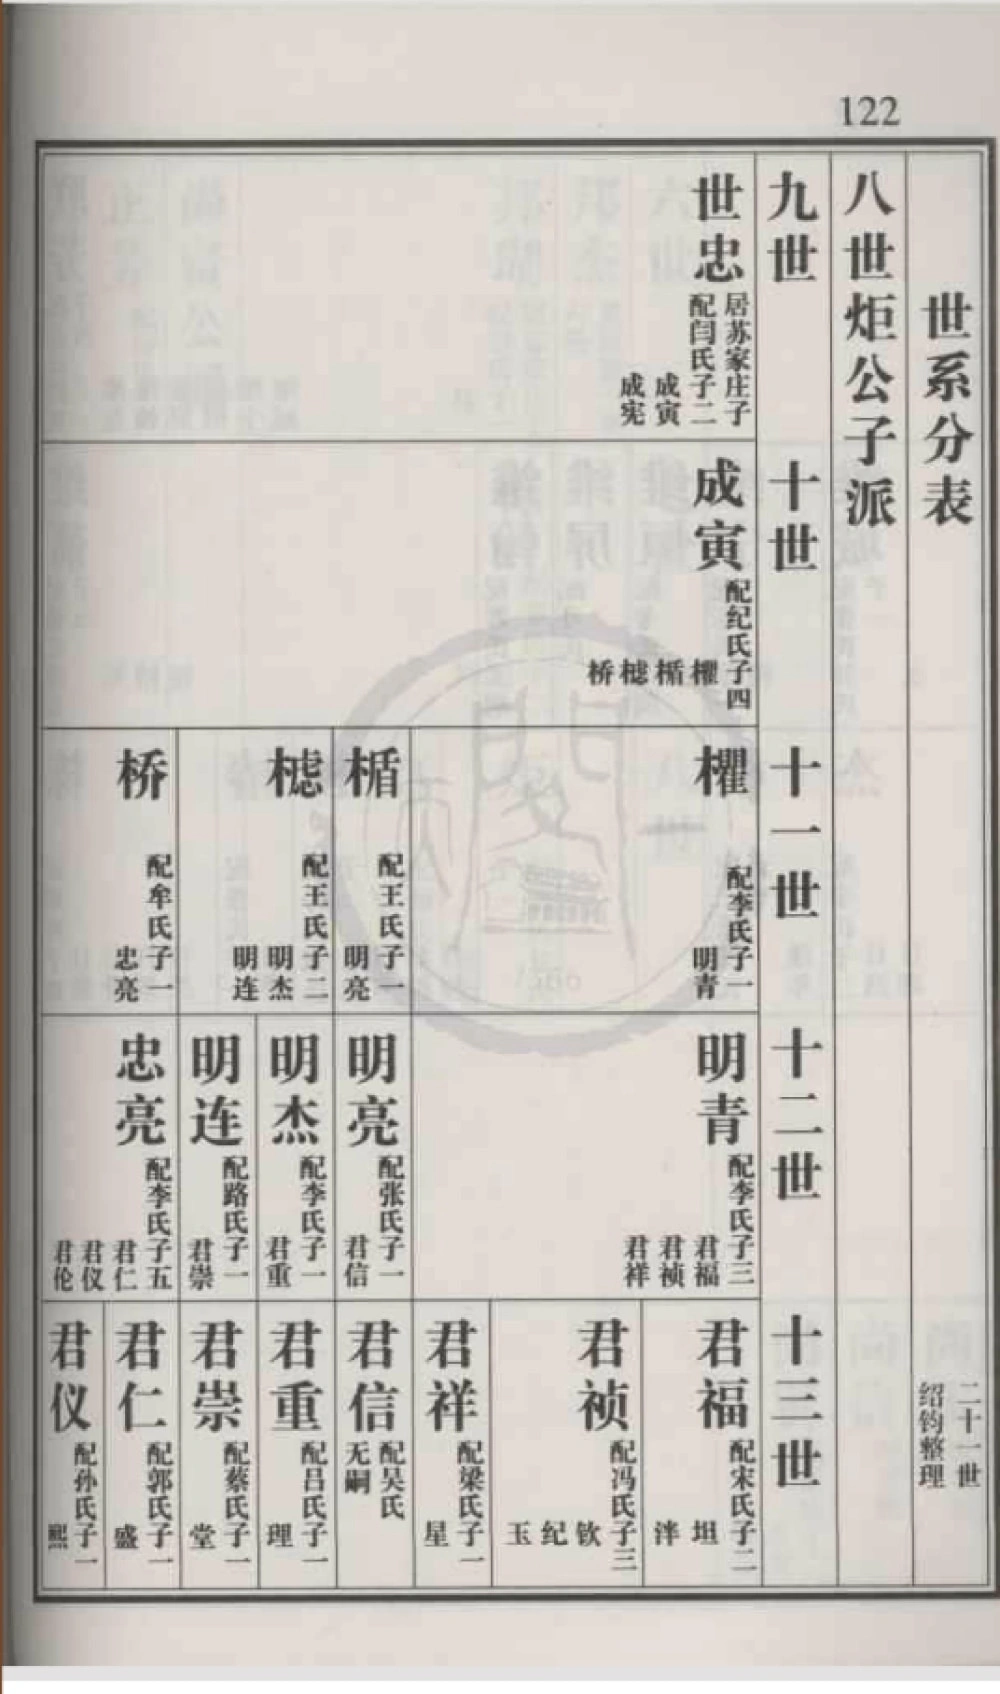 122
世系分表
二十一世
绍钧整理
八世炬公子派
九世
世忠
居苏家庄子
配闫氏子二
成寅
成宪
十世
成寅
配纪氏子四
欋
楯
櫖
桥
十一世
欋
配李氏子一
明青
楯
配王氏子一
明亮
櫖
配王氏子二
明杰
明连
桥
配牟氏子一
忠亮
十二世
明青
配李氏子三
君福
君祯
君祥
明亮
配张氏子一
君信
明杰
配李氏子一
君重
明连
配路氏子一
君崇
忠亮
配李氏子五
君仁
君仪
君伦
十三世
君福
配宋氏子二
坦
泮
君祯
配冯氏子三
钦
纪
玉
君祥
配梁氏子一
星
君信
配吴氏
无嗣
君重
配吕氏子一
理
君崇
配蔡氏子一
堂
君仁
配郭氏子一
盛
君仪
配孙氏子一
熙